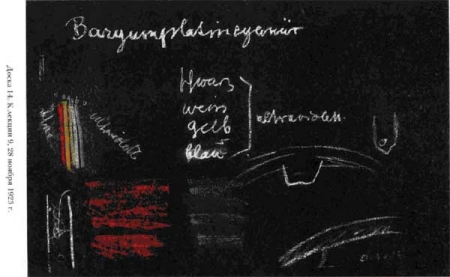 Доска 14. К лекции 9, 28 ноября 1923 г.
Baryumplatincyanür
schwarz
weiss
gelb
blau
ultraviolett
ultraviolett